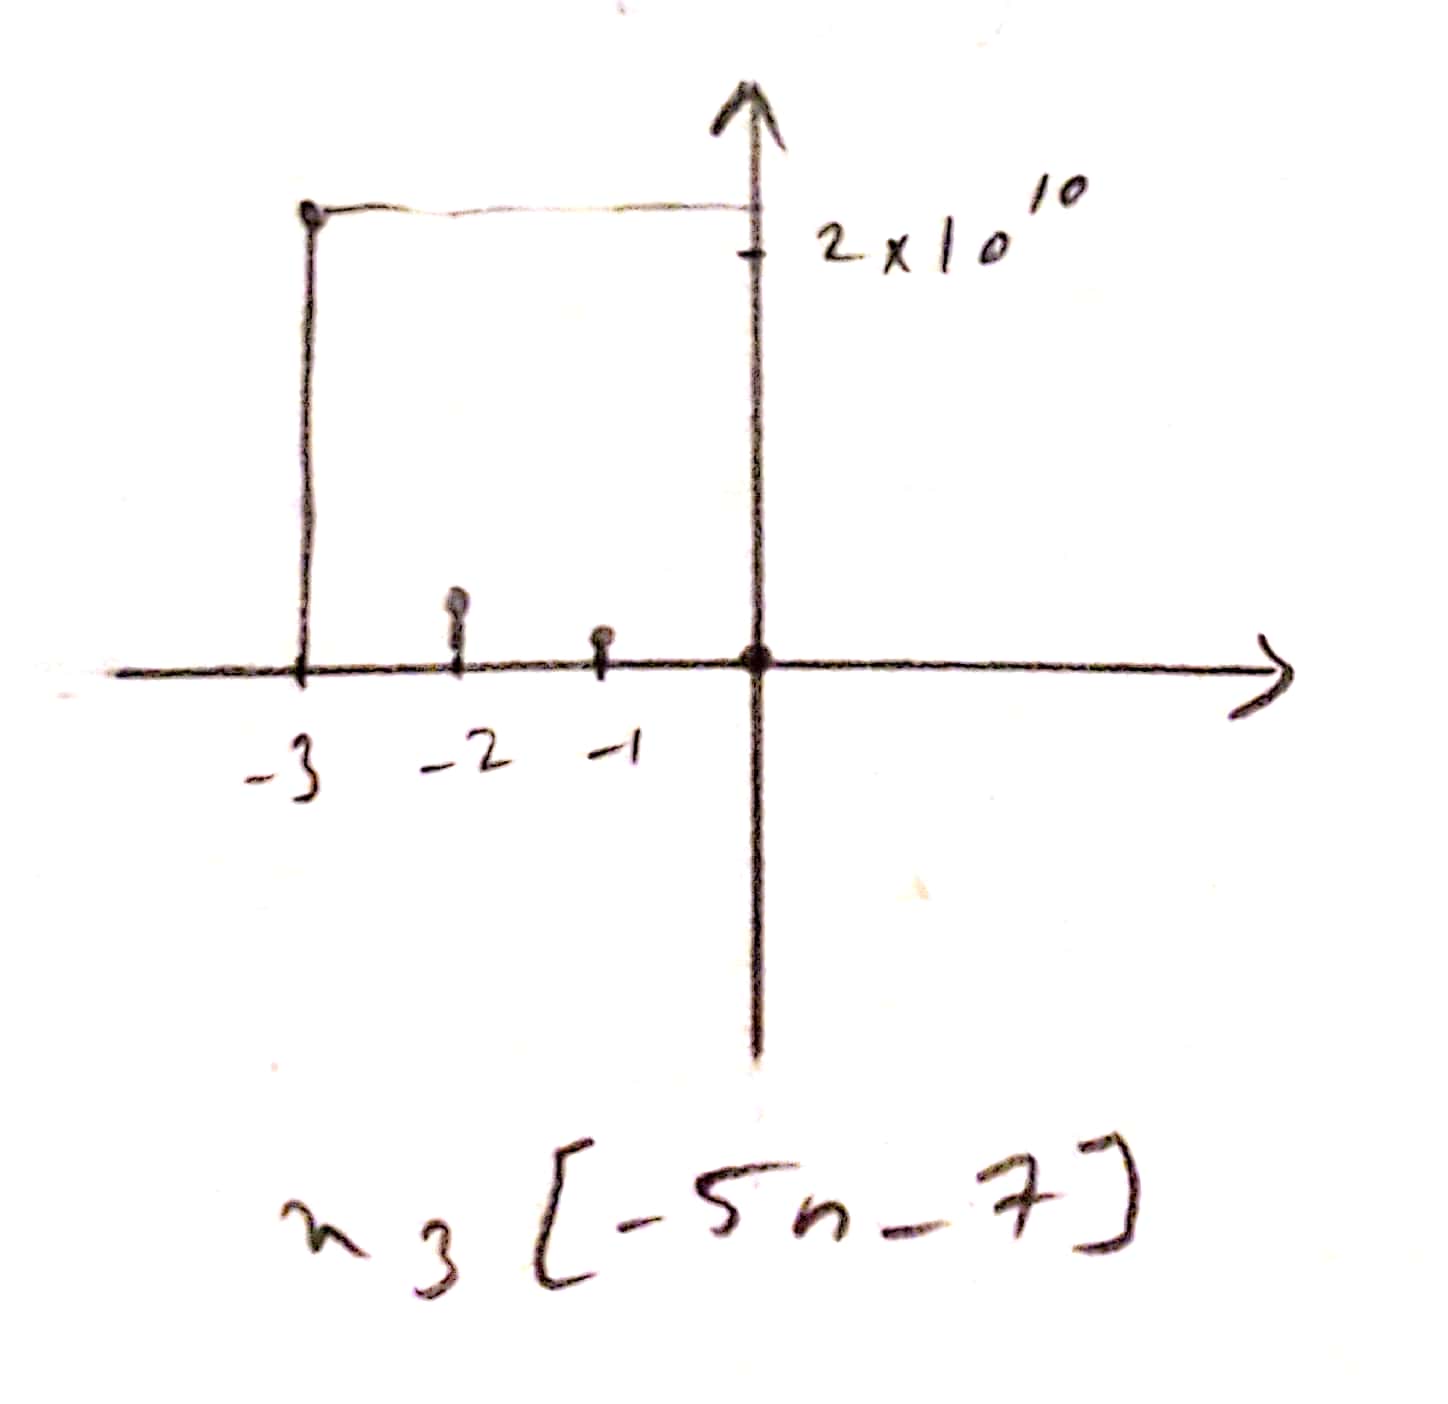 2 x 10^10
-3 -2 -1
x_3 [-5n-7]